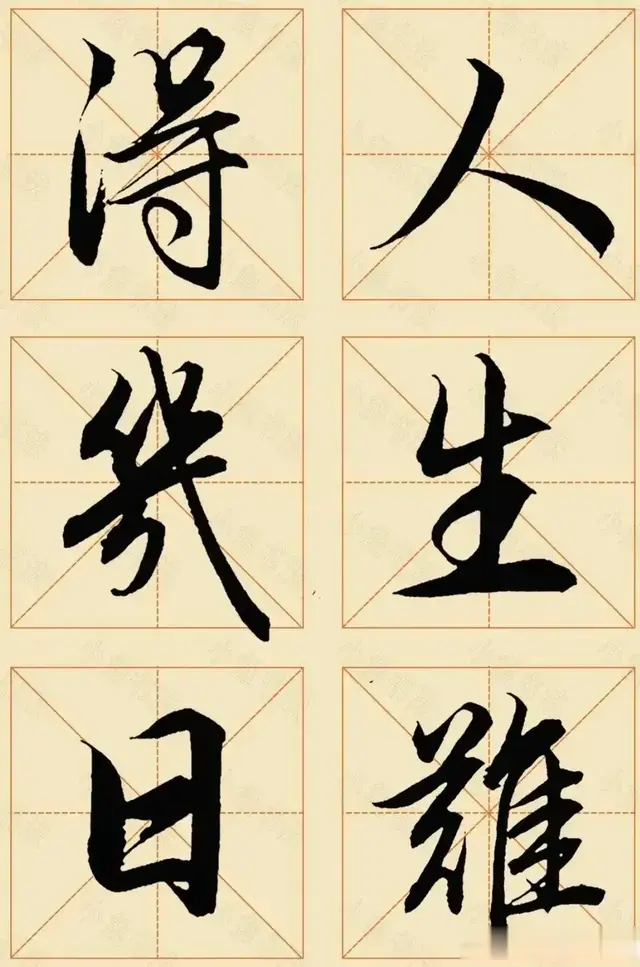 人生難
得幾日